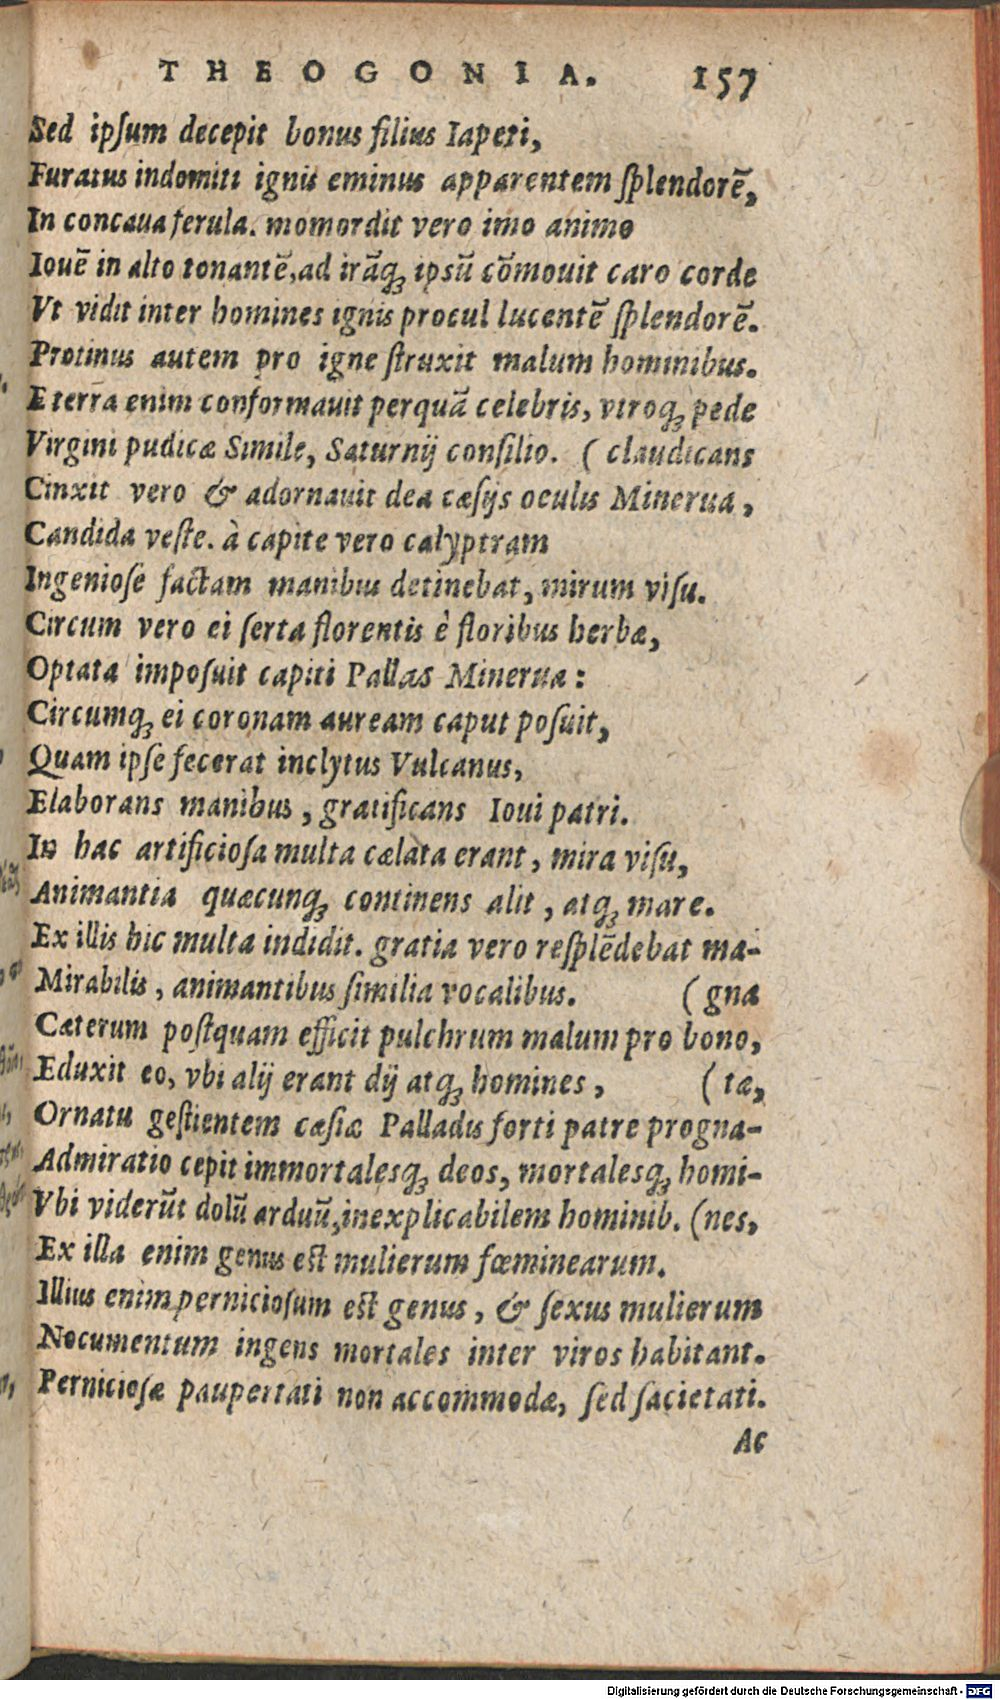 THEOGONIA. 157
Sed ipſum decepit bonus filius Iapeti,
Furatus indomiti ignis eminus apparentem ſplendorẽ,
In concaua ferula. momordit vero imo animo
Iouẽ in alto tonantẽ, ad irãq́ꝫ ipsũ cõmouit caro corde
Vt vidit inter homines ignis procul lucentẽ ſplendorẽ.
Protinus autem pro igne ſtruxit malum hominibus.
E terra enim conformauit perquã celebris, vtroqꝫ pede
Virgini pudicæ Simile, Saturnij conſilio. ( claudicans
Cinxit vero & adornauit dea cæſijs oculis Minerua,
Candida veſte. à capite vero calyptram
Ingenioſe factam manibus detinebat, mirum viſu.
Circum vero ei ſerta florentis è floribus herbæ,
Optata impoſuit capiti Pallas Minerua:
Circumqꝫ ei coronam auream caput poſuit,
Quam ipſe fecerat inclytus Vulcanus,
Elaborans manibus, gratificans Ioui patri.
In hac artificioſa multa cælata erant, mira viſu,
Animantia quæcunqꝫ continens alit, atqꝫ mare.
Ex illis hic multa indidit. gratia vero reſplẽdebat ma-
Mirabilis, animantibus ſimilia vocalibus. ( gna
Cæterum poſtquam efficit pulchrum malum pro bono,
Eduxit eo, vbi alij erant dij atqꝫ homines, ( tæ,
Ornatu geſtientem cæſiæ Palladis forti patre progna-
Admiratio cepit immortalesqꝫ deos, mortalesqꝫ homi-
Vbi viderũt dolũ arduũ, inexplicabilem hominib. (nes,
Ex illa enim genus eſt mulierum fœminearum.
Illius enim pernicioſum eſt genus, & ſexus mulierum
Nocumentum ingens mortales inter viros habitant.
Pernicioſæ paupertati non accommodæ, ſed ſacietati.
Ac
Digitalisierung gefördert durch die Deutsche Forschungsgemeinschaft - DFG